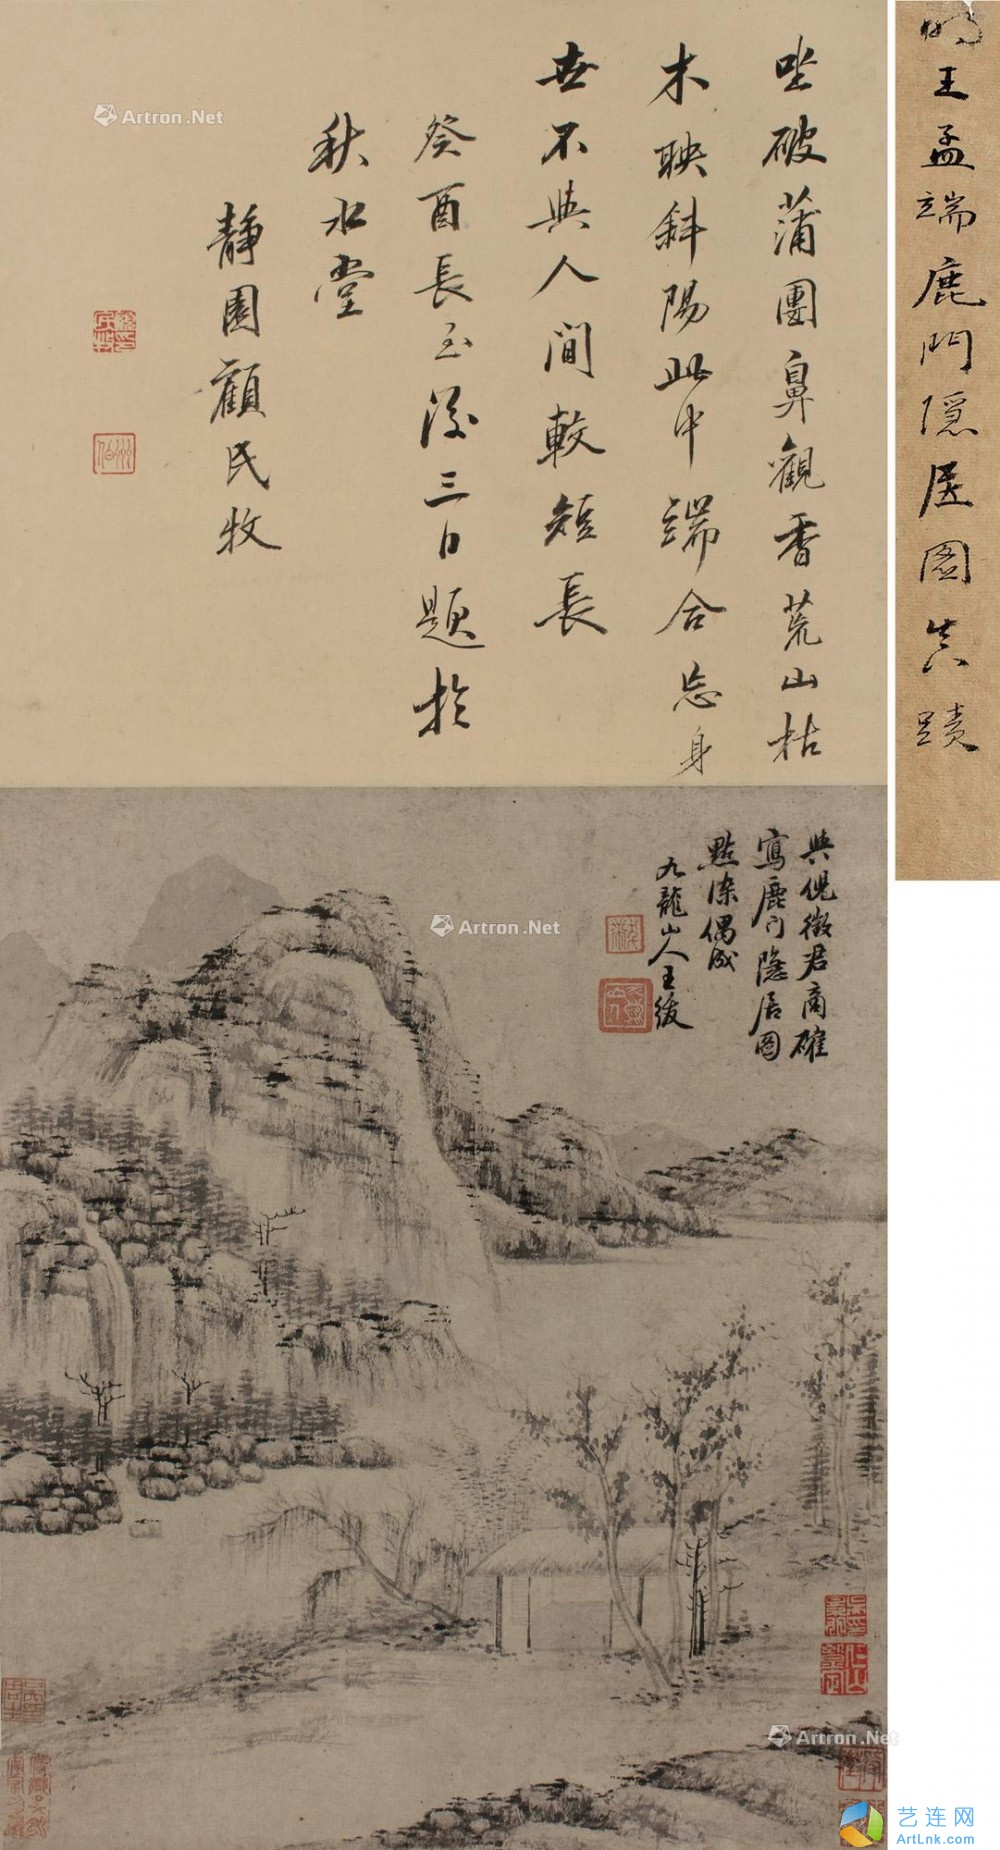 明王孟端鹿門隱居圖真蹟
坐破蒲團鼻觀香荒山枯
木映斜陽此中端合忘身
世不與人間較短長
癸酉長至後三日題於
秋水堂
靜園顧民牧
與倪徵君商確
寫鹿門隱居圖
點染偶成
九龍山人王紱
Artron.Net
Artron.Net
Artron.Net
艺连网
ArtLnk.com